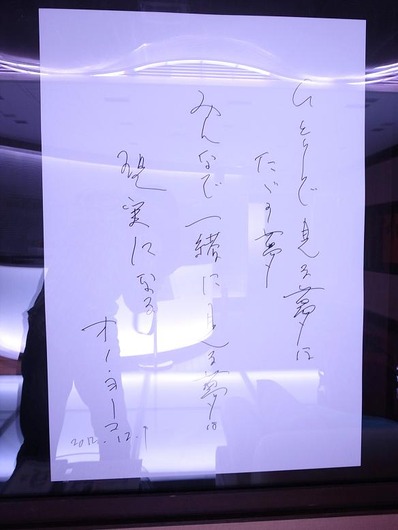 ひとりで見る夢は
ただの夢
みんなで一緒に見る夢は
現実になる
オノ・ヨーコ
2012.12.9